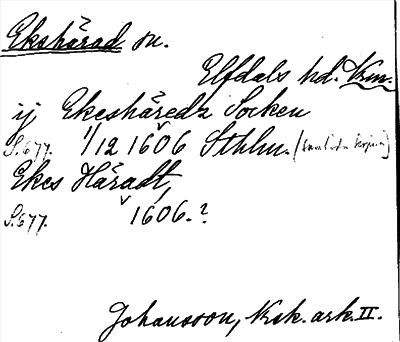 Ekshärad sn.
Elfdals hd. Vrm.
ij Ekeshäredz Socken
S. 677. 1/12 1606 Sthlm. (samtida kopia)
Ekes Häradt,
S. 677. 1606.?
Johansson, Vrk. ark. II.